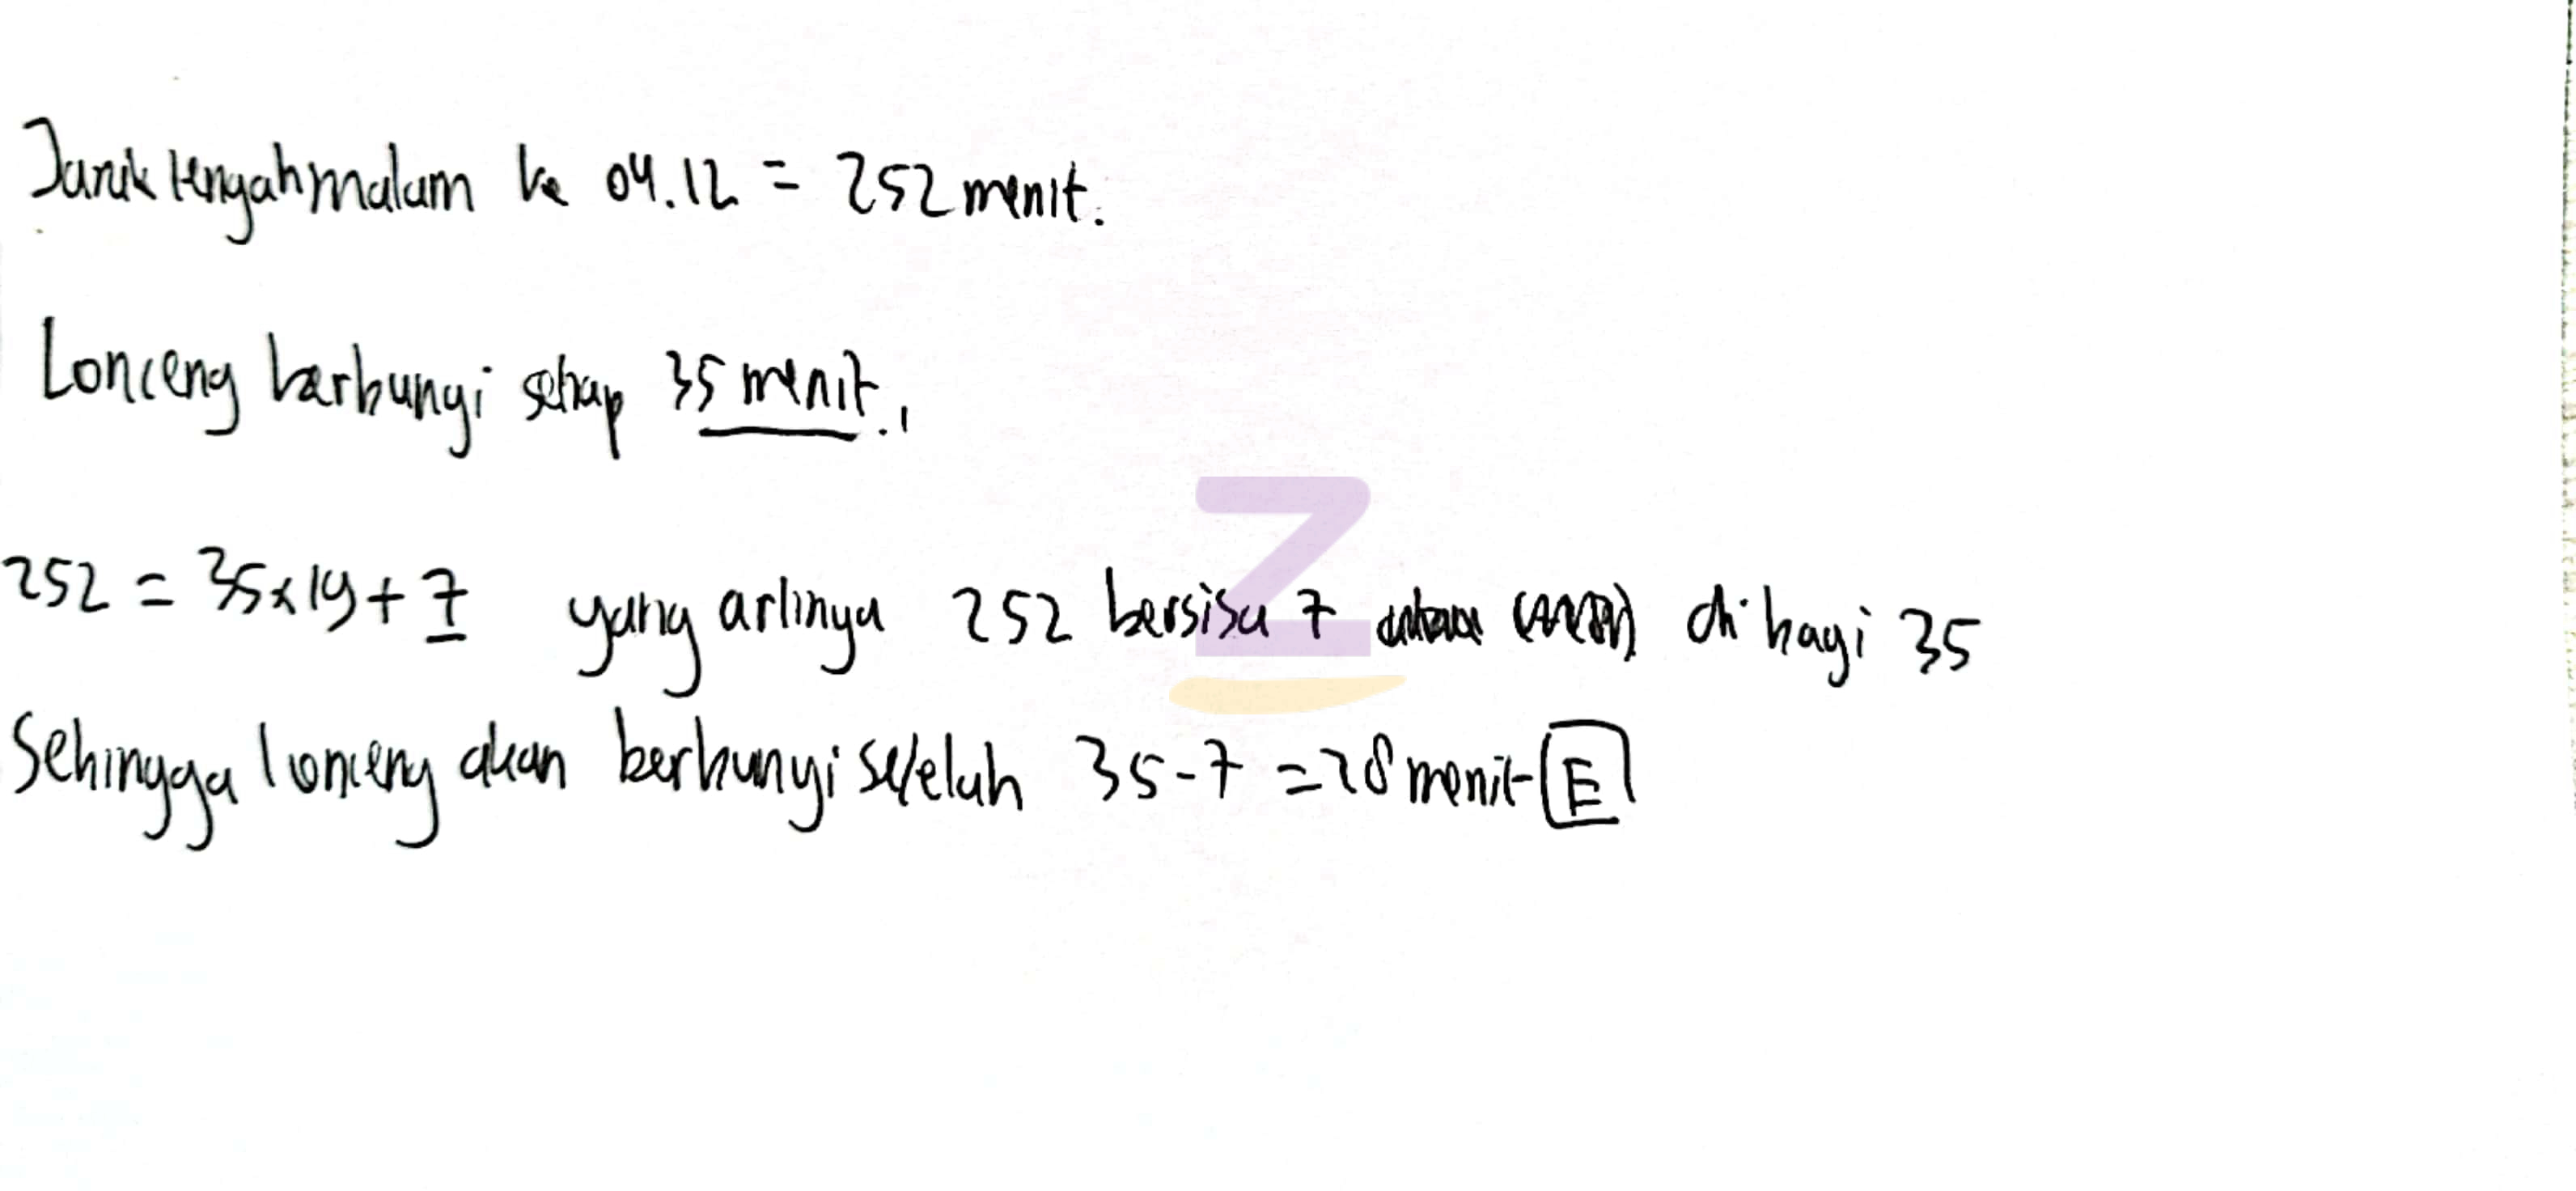 Jarak tengah malam ke 04.12 = 252 menit.
Lonceng berbunyi setiap 35 menit.
252 = 35x19+7 yang artinya 252 bersisa 7 dibagi 35
Sehingga lonceng akan berbunyi setelah 35-7 = 28 menit E
Z